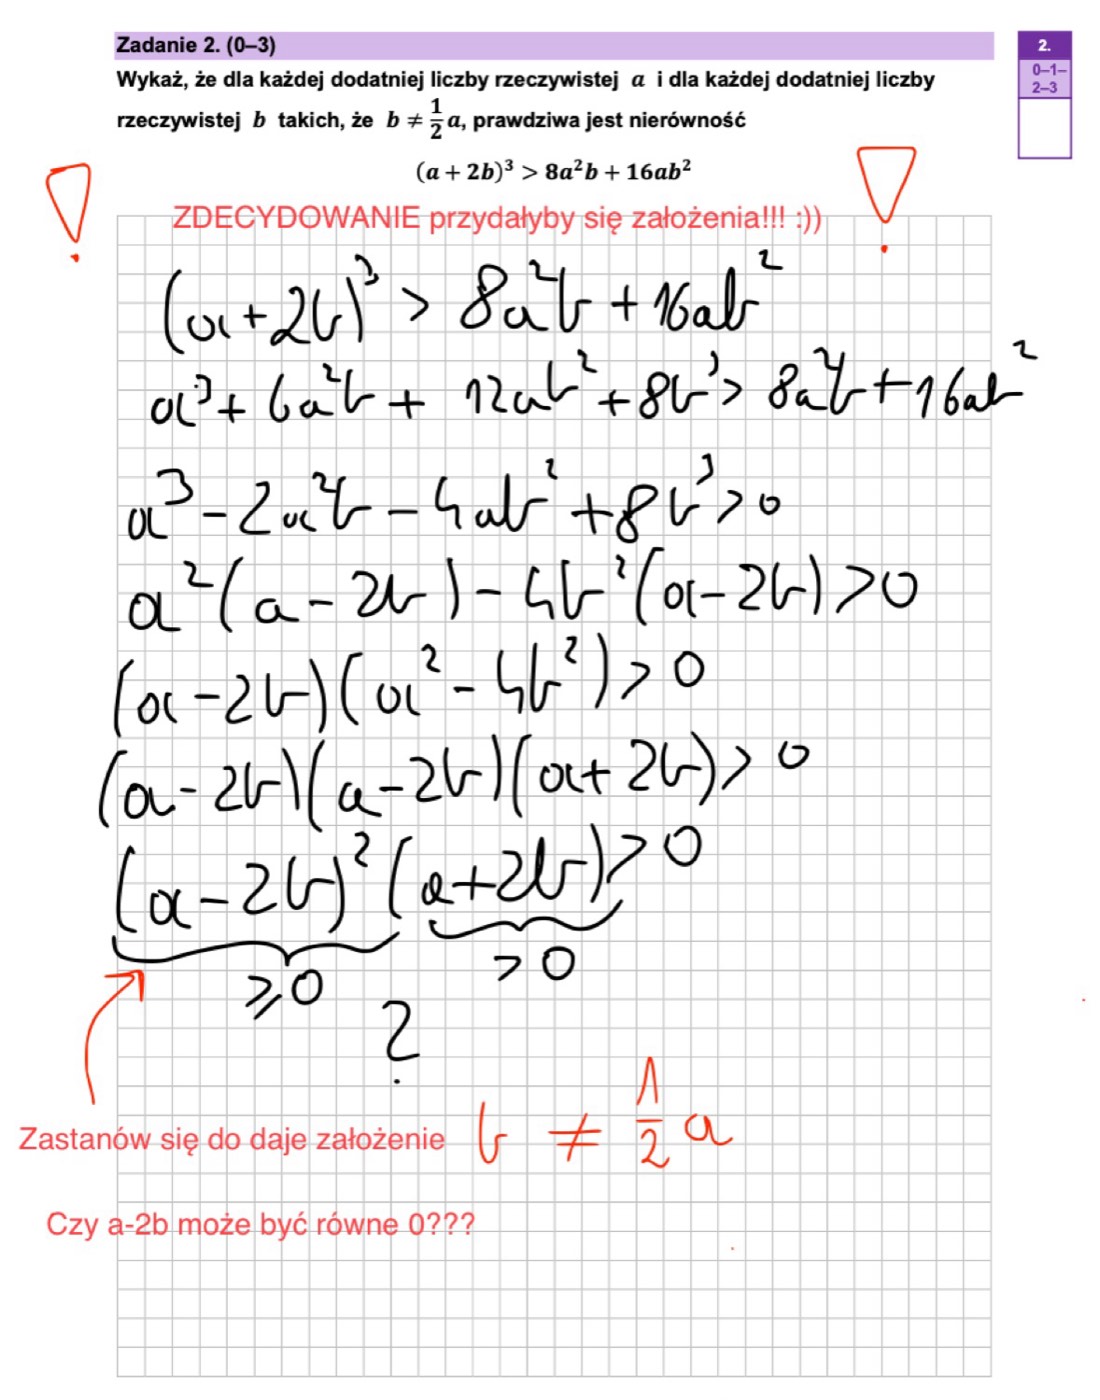 Zadanie 2. (0–3)
2.
0–1–
2–3
Wykaż, że dla każdej dodatniej liczby rzeczywistej a i dla każdej dodatniej liczby
rzeczywistej b takich, że b ≠ 1/2 a, prawdziwa jest nierówność
(a + 2b)³ > 8a²b + 16ab²
! !
ZDECYDOWANIE przydałyby się założenia!!! :))
(a+2b)³ > 8a²b + 16ab²
a³ + 6a²b + 12ab² + 8b³ > 8a²b + 16ab²
a³ - 2a²b - 4ab² + 8b³ > 0
a²(a - 2b) - 4b²(a - 2b) > 0
(a - 2b)(a² - 4b²) > 0
(a - 2b)(a - 2b)(a + 2b) > 0
(a - 2b)²(a + 2b) > 0
≥0 >0
?
Zastanów się do daje założenie b ≠ 1/2 a
Czy a-2b może być równe 0???